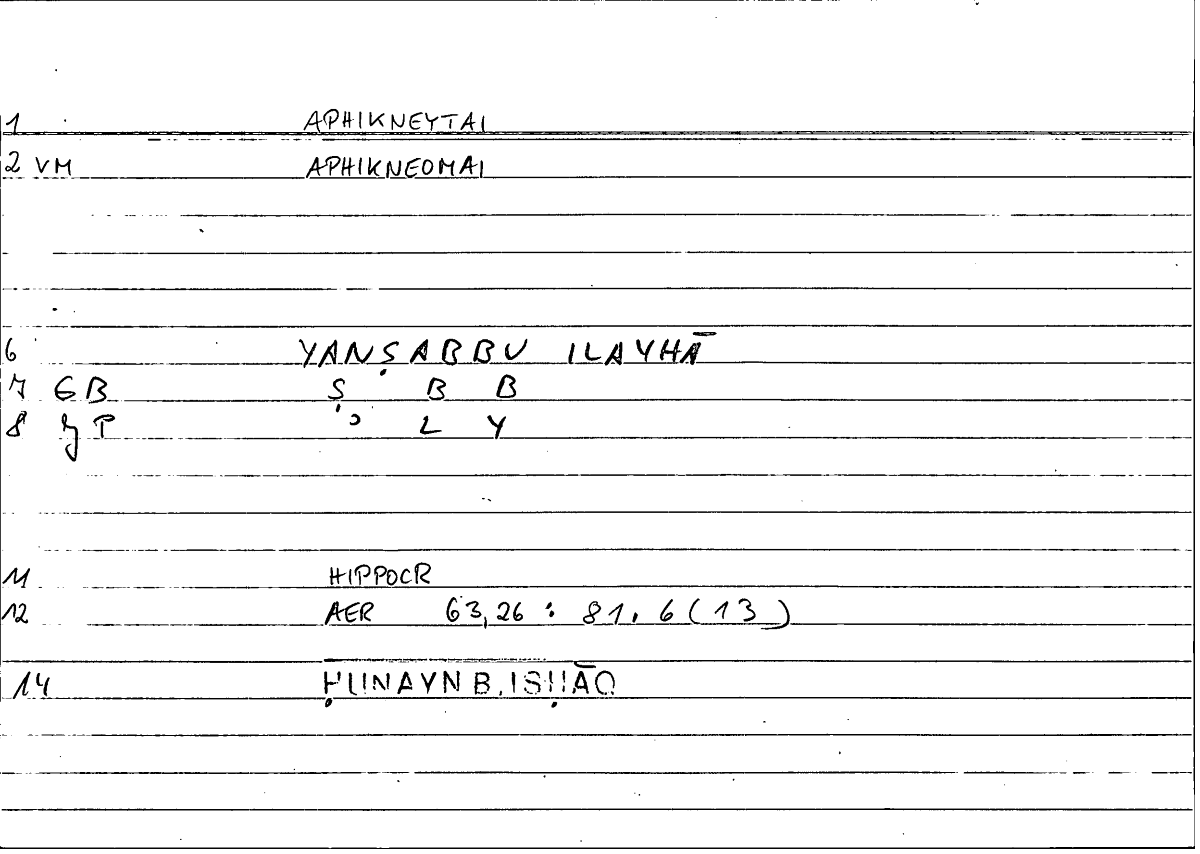 1 APHIKNEYTAI
2 VM APHIKNEOMAI
6 YANṢABBU ILAYHĀ
7 GB Ṣ B B
8 JP ʾ L Y
11 HIPPOCR
12 AER 63,26 : 81.6 (13)
14 ḤUNAYN B. ISḤĀQ